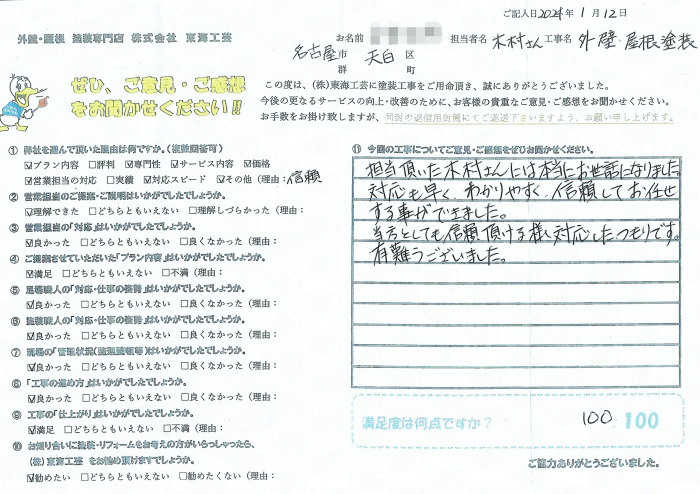 ご記入日2024年1月12日
外壁・屋根 塗装専門店 株式会社 東海工芸
お名前 担当者名 木村さん 工事名 外壁・屋根塗装
名古屋 市 天白 区
郡 町
ぜひ、ご意見・ご感想
をお聞かせください!!
この度は、(株)東海工芸に塗装工事をご用命頂き、誠にありがとうございました。
今後の更なるサービスの向上・改善のために、お客様の貴重なご意見・ご感想をお聞かせください。
お手数をお掛け致しますが、同封の返信用封筒にてご返送下さいますよう、お願い申し上げます。
① 弊社を選んで頂いた理由は何ですか。(複数回答可)
☑プラン内容 ☐評判 ☑専門性 ☑サービス内容 ☑価格
☑営業担当の対応 ☐実績 ☑対応スピード ☑その他(理由:信頼
② 営業担当のご提案・ご説明はいかがでしたでしょうか。
☑理解できた ☐どちらともいえない ☐理解しづらかった(理由:
③ 営業担当の「対応」はいかがでしたでしょうか。
☑良かった ☐どちらともいえない ☐良くなかった(理由:
④ ご提案させていただいた「プラン内容」はいかがでしたでしょうか。
☑満足 ☐どちらともいえない ☐不満(理由:
⑤ 足場職人の「対応・仕事の姿勢」はいかがでしたでしょうか。
☑良かった ☐どちらともいえない ☐良くなかった(理由:
⑥ 塗装職人の「対応・仕事の姿勢」はいかがでしたでしょうか。
☑良かった ☐どちらともいえない ☐良くなかった(理由:
⑦ 現場の「管理状況(整理整頓等)はいかがでしたでしょうか。
☑良かった ☐どちらともいえない ☐良くなかった(理由:
⑧ 「工事の進め方」はいかがでしたでしょうか。
☑良かった ☐どちらともいえない ☐良くなかった(理由:
⑨ 工事の「仕上がり」はいかがでしたでしょうか。
☑満足 ☐どちらともいえない ☐不満(理由:
⑩ お知り合いに塗装・リフォームをお考えの方がいらっしゃったら、
(株)東海工芸 をお勧め頂けますでしょうか。
☑勧めたい ☐どちらともいえない ☐勧めたくない(理由:
⑪ 今回の工事についてご意見・ご感想をぜひお聞かせください。
担当頂いた木村さんには本当にお世話になりました。
対応も早く、わかりやすく、信頼してお任せ
する事ができました。
当方としても信頼頂ける様、対応したつもりです。
有難うございました。
満足度は何点ですか? 100 100
ご協力ありがとうございました。